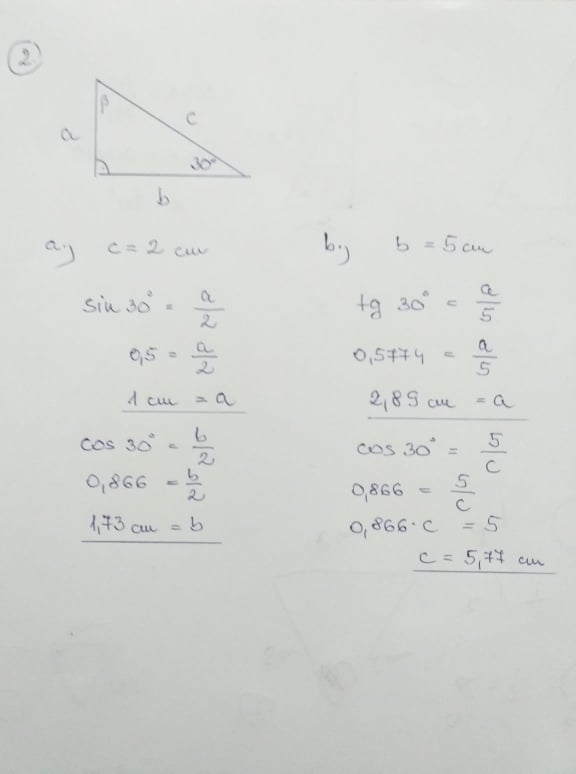 2.
β
c
a
30°
b
a.) c = 2 cm
sin 30° = a/2
0,5 = a/2
1 cm = a
cos 30° = b/2
0,866 = b/2
1,73 cm = b
b.) b = 5 cm
tg 30° = a/5
0,5774 = a/5
2,89 cm = a
cos 30° = 5/c
0,866 = 5/c
0,866 · c = 5
c = 5,77 cm